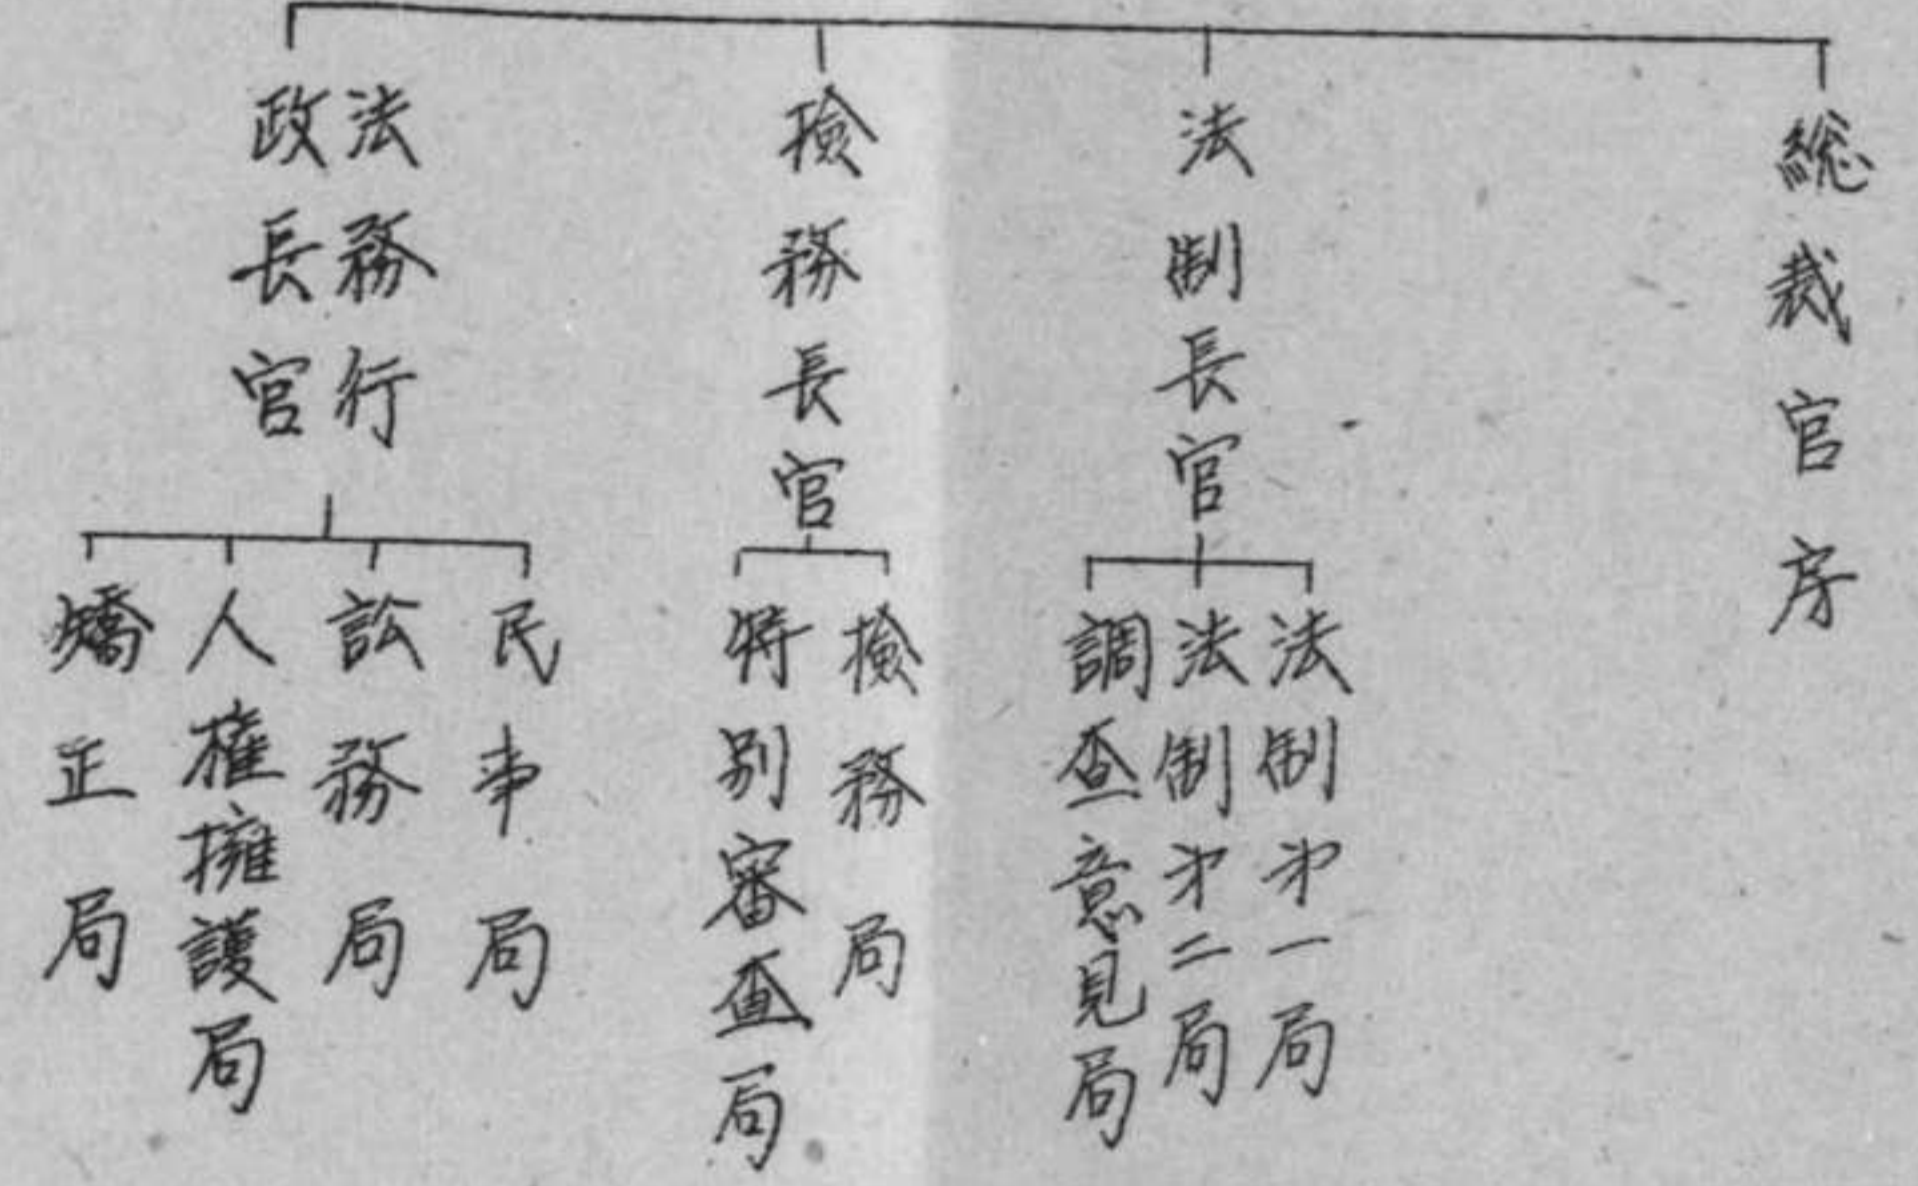 総裁官房
法制長官
法制才一局
法制才二局
調査意見局
検務長官
検務局
特別審査局
法務行
政長官
民事局
訟務局
人権擁護局
矯正局